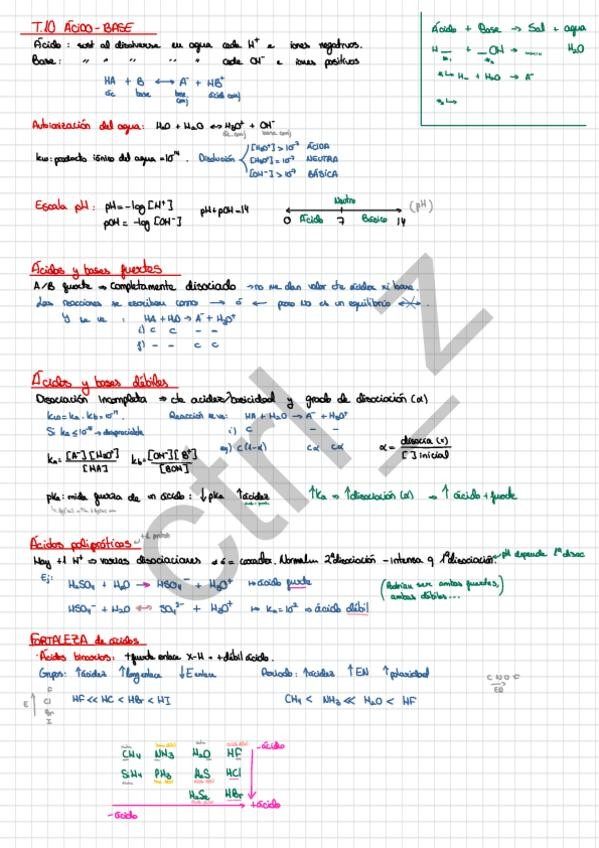 T.10 ÁCIDO-BASE
Ácido: sust al disolverse en agua cede H⁺ e iones negativos.
Base: " " " " cede OH⁻ e iones positivos
HA + B ⟷ A⁻ + HB⁺
ác base base conj ácido conj
Ácido + Base → Sal + agua
H_ + _OH → H₂O
H_ + H₂O → A⁻
Autoionización del agua: H₂O + H₂O ⟷ H₃O⁺ + OH⁻
ác conj base conj
kw: producto iónico del agua = 10⁻¹⁴. Disolución
[H₃O⁺] > 10⁻⁷ ÁCIDA
[H₃O⁺] = 10⁻⁷ NEUTRA
[OH⁻] > 10⁻⁷ BÁSICA
Escala pH: pH = -log [H⁺] pH + pOH = 14
pOH = -log [OH⁻]
Neutro
0 Ácido 7 Básico 14 (pH)
Ácidos y bases fuertes
A/B fuerte → completamente disociado → no me dan valor cte acidez ni base.
Las reacciones se escriben como → ó ← pero no es un equilibrio
Y se ve: HA + H₂O → A⁻ + H₃O⁺
i) C C - -
f) - - C C
Ácidos y bases débiles
Disociación incompleta → cte acidez/basicidad y grado de disociación (α)
kw = ka · kb = 10⁻¹⁴. Reacción se ve: HA + H₂O → A⁻ + H₃O⁺
i) C - -
eq) C(1-α) Cα Cα
α = disocia (x) / [ ] inicial
ka = [A⁻][H₃O⁺] / [HA] kb = [OH⁻][B⁺] / [BOH]
pKa: mide fuerza de un ácido: ↓pKa ↑acidez ↑Ka → ↑disociación (α) → ↑ ácido + fuerte
Ácidos polipróticos
Hay +1 H⁺ → varias disociaciones
Normalm 2ª disociación - intensa q 1ª disociación. pH depende 1ª disoc
Ej: H₂SO₄ + H₂O → HSO₄⁻ + H₃O⁺ ↦ ácido fuerte
HSO₄⁻ + H₂O ⟷ SO₄²⁻ + H₃O⁺ ↦ Ka = 10⁻² → ácido débil
(Podrían ser ambas fuertes,
ambas débiles...)
FORTALEZA de ácidos
· Ácidos binarios: + fuerte enlace X-H = + débil ácido.
Grupo: ↑acidez ↑long enlace ↓E enlace Periodo: ↑acidez ↑EN ↑polaridad
C N O F
EN
E
F
Cl
Br
I
HF << HC < HBr < HI CH₄ < NH₃ << H₂O < HF
CH₄ NH₃ H₂O HF - ácido
SiH₄ PH₃ H₂S HCl
H₂Se HBr
- ácido + ácido
ctrl_z